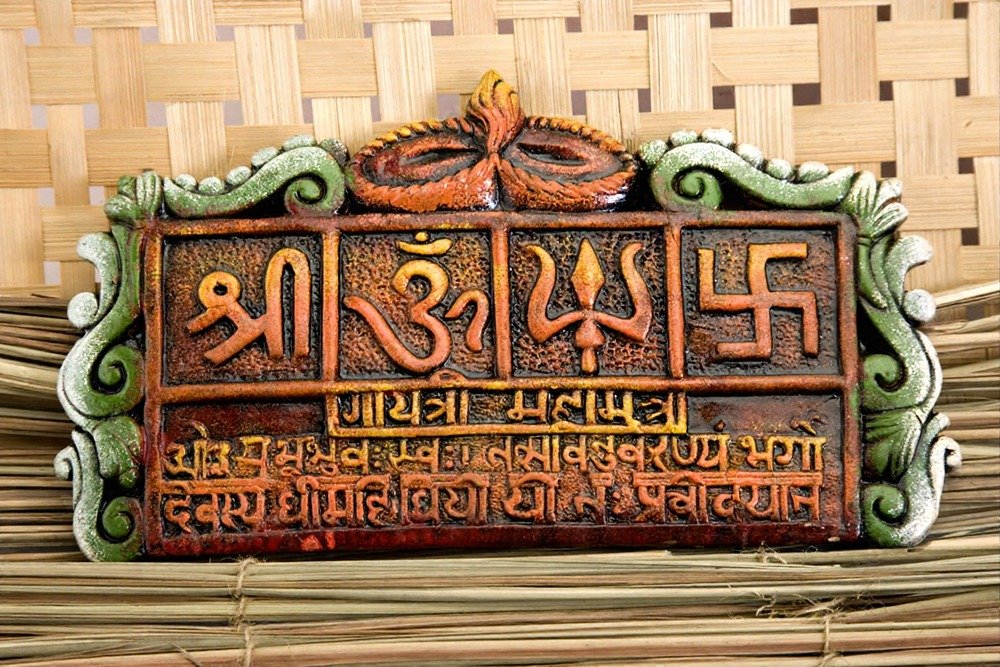 श्री ॐ
गायत्री महामंत्रा
ओ३म भूर्भुवः स्वः। तत्सवितुर्वरेण्यं भर्गो
देवस्य धीमहि धियो यो नः प्रचोदयात